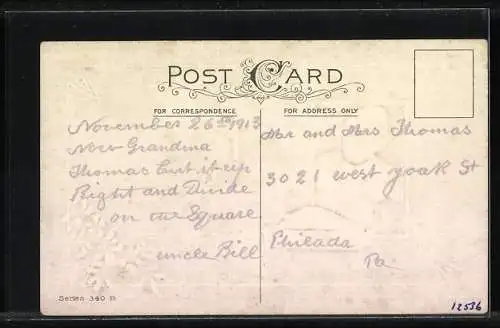 POST CARD
FOR CORRESPONDENCE
FOR ADDRESS ONLY
November 26th 1913
Now Grandma
Thomas Cut it up
Right and Divide
on the Square
uncle Bill
Mr and Mrs Thomas
3021 west york St
Philada
Pa
Serien 340 B
12536